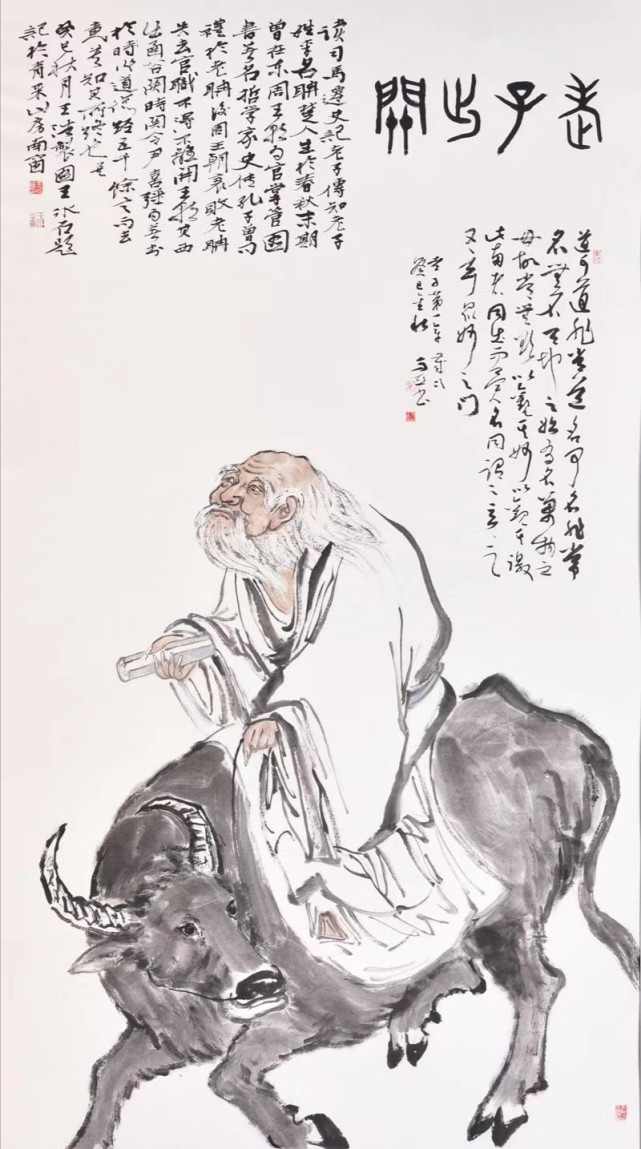 老子出關
道可道非常道名可名非常
名無名天地之始有名萬物之
母故常無欲以觀其妙以觀其徼
此兩者同出而異名同謂之玄之
又玄眾妙之門
老子第一章
癸巳
讀司馬遷史記老子傳知老子
姓李名聃楚人生於春秋末期
曾在东周王朝为官掌管图
書著名哲學家史传孔子曾问
禮於老聃後周王朝衰敗老聃
失去官職不得不離開王都西
出函谷関時関令尹喜强曰著书
於時道德经五千餘言而去
莫知其所终也
癸巳秋月王國王冰石題
記於南窗